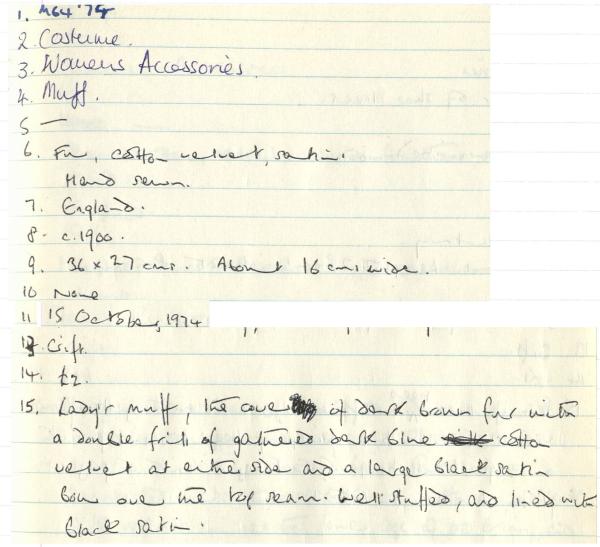 1. M64'74
2 Costume.
3. Womens Accessories.
4. Muff.
5 —
6. Fur, cotton velvet, satin.
Hand sewn.
7. England.
8. c.1900.
9. 36 x 27 cms. About 16 cms wide.
10 None
11 15 October, 1974
13. Gift.
14. £2.
15. Lady's muff, the cover of dark brown fur with
a double frill of gathered dark blue cotton
velvet at either side and a large black satin
bow over the top seam. Well stuffed, and lined with
black satin.